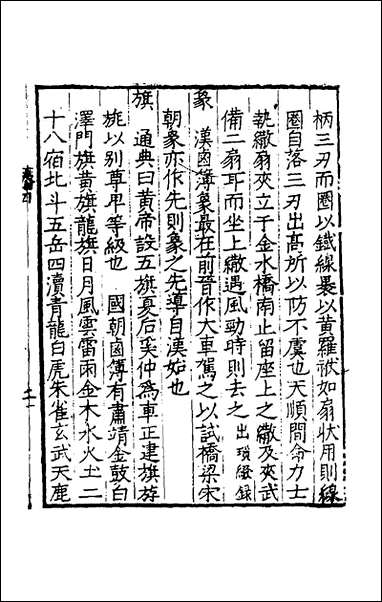 柄三刃而圈以鐵線裹以黄羅袱如扇状用則線
圈自落三刃出髙所以防不虞也天順間命力士
執繖扇夾立于金水橋南止留座上之繖及夾武
備二扇耳而坐上繖遇風勁時則去之出瑣綴録
象　漢鹵簿象最在前晋作大車駕之以試橋梁宋
朝象亦作先則象之先導自漢始也
旗　通典曰黄帝設五旗夏后奚仲為車正建旗斿
旐以别尊卑等級也　國朝鹵簿有肅靖金鼓白
澤門旗黄旗龍旗日月風雲雷雨金木水火土二
十八宿北斗五岳四瀆青龍白虎朱雀玄武天鹿